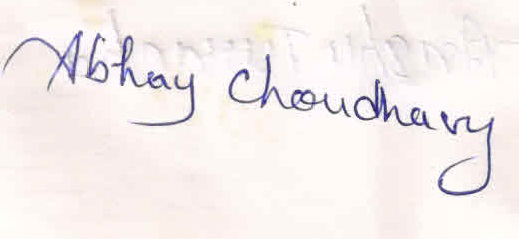 Abhay Choudhary